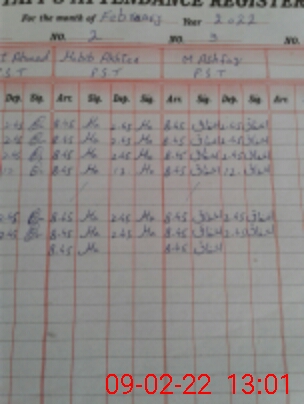 ATTENDANCE REGISTER
For the month of February Year 2022
NO. 2 NO. 3 NO.
Ahmad Habib Akhtar M Ashfaq
PST PST PST
Dep. Sig. Arr. Sig. Dep. Sig. Arr. Sig. Dep. Sig. Arr.
2.45 8.45 Ha 2.45 Ha 8.45 اشفاق 2.45 اشفاق
2.45 8.45 Ha 2.45 Ha 8.45 اشفاق 2.45 اشفاق
2.45 8.45 Ha 2.45 Ha 8.45 اشفاق 2.45 اشفاق
12 8.45 Ha 12 Ha 8.45 اشفاق 12 اشفاق
2.45 8.45 Ha 2.45 Ha 8.45 اشفاق 2.45 اشفاق
2.45 8.45 Ha 2.45 Ha 8.45 اشفاق 2.45 اشفاق
8.45 Ha 8.45 اشفاق
09-02-22 13:01